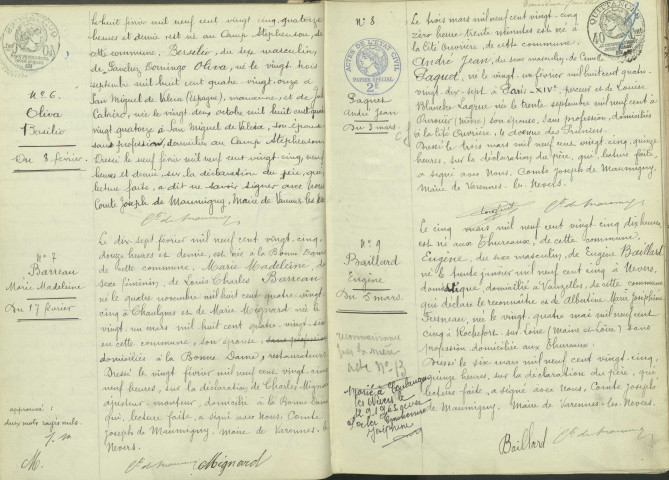 N° 6
Oliva
Basilio
Du 8 février
Le huit février mil neuf cent vingt cinq quatorze
heures est né au Camp Stephenson, de
cette commune, Berselio, du sexe masculin,
de Sanchez Domingo Oliva, né le vingt trois
septembre mil huit cent quatre vingt onze à
San Miguel de Valero (Espagne), manœuvre et de
née le vingt deux octobre mil huit cent quatre
vingt quatorze à San Miguel de Valero, son épouse
sans profession, domiciliés au Camp Stephenson
Dressé le neuf février mil neuf cent vingt cinq, neuf
heures et demie sur la déclaration du père, qui,
lecture faite, a dit ne savoir signer avec Nous
Comte Joseph de Maumigny, Maire de Varennes les Nevers
Cte de Maumigny
N° 7
Barreau
Marie Madeleine
Du 17 février
Le dix sept février mil neuf cent vingt cinq
douze heures et demie, est née à la Bonne Dame
de cette commune, Marie Madeleine, du
sexe féminin, de Louis Charles Barreau
né le quatre novembre mil huit cent quatre vingt
cinq à Chaulgnes et de Marie Mignard née le
vingt un mars mil huit cent quatre vingt
en cette commune, son épouse,
domiciliés à la Bonne Dame, restaurateurs
Dressé le vingt février mil neuf cent vingt cinq
neuf heures, sur la déclaration de Charles Mignard
ajusteur monteur, domicilié à la Bonne Dame
qui, lecture faite, a signé avec Nous, Comte
Joseph de Maumigny, Maire de Varennes les
Nevers.
approuvé :
deux mots rayés nuls.
M.
Cte de Maumigny Mignard
N° 8
ACTES DE L'ETAT CIVIL
PAPIER SPÉCIAL
2F
Paquet
André Jean
Du 3 mars
Le trois mars mil neuf cent vingt cinq
zéro heure trente minutes est né à
la Cité Ouvrière, de cette commune
André Jean, du sexe masculin, de Camille
Paquet, né le vingt un février mil huit cent quatre
vingt dix sept à Paris XIVe, et de Louise
Blanche Lagrue née le trente septembre mil neuf cent à
son épouse, sans profession, domiciliés
à la Cité Ouvrière,
Dressé le trois mars mil neuf cent vingt cinq, quinze
heures, sur la déclaration du père, qui, lecture faite,
a signé avec Nous, Comte Joseph de Maumigny,
Maire de Varennes les Nevers.
Cte de Maumigny
N° 9
Baillard
Eugène
Du 5 mars
Le cinq mars mil neuf cent vingt cinq dix heures
est né aux Thureaux, de cette commune
Eugène, du sexe masculin, de Eugène Baillard
né le trente janvier mil neuf cent cinq à Nevers,
domestique, domicilié à Vauzelles, de cette commune
qui déclare le reconnaître et de Albertine Marie Joséphine
Fresneau, née le vingt quatre mai mil neuf cent
cinq à Rochefort sur Loire (Maine et Loire) sans
profession domiciliée aux Thureaux.
Dressé le six mars mil neuf cent vingt cinq,
quinze heures, sur la déclaration du père, qui
lecture faite, a signé avec Nous, Comte Joseph
de Maumigny, Maire de Varennes les Nevers.
reconnaissance
par la mère
acte N° 13
Marié à
Joséphine
Baillard Cte de Maumigny